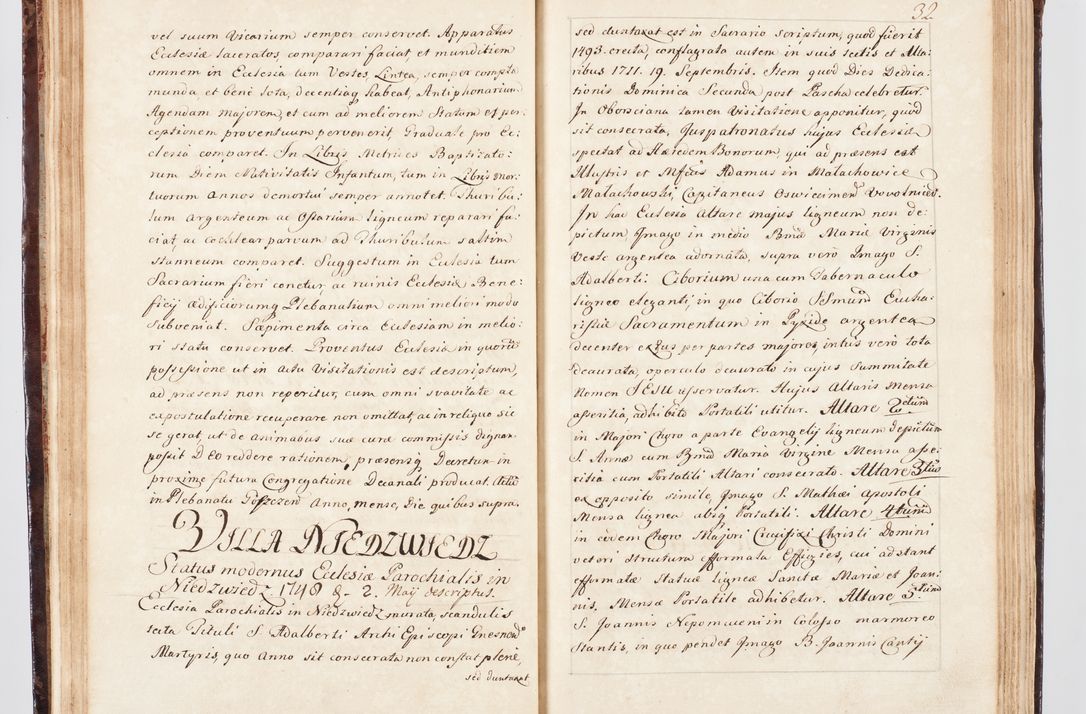 vel suum Vicarium semper conservet. Apparatus
Ecclesiæ laceratos, comparari faciat, et munditiem
omnem in Ecclesia tum Vestes, Lintea, semper compta
munda, et benè lota, decentiaq habeat, Antiphonarium
Agendam majorem, et cum ad meliorem Statum et per:
ceptionem proventuum pervenerit Graduale pro Ec:
clesia comparet. In Libris Metrices Baptizato:
rum Diem Nativitatis Infantum, tum in Libris mor:
tuorum Annos demortui semper annotet. Thuribu:
lum argenteum ac Ossarium ligneum reparari fa:
ciat, ac cochlear parvum ad Thuribulum saltim
stanneum comparet. Suggestum in Ecclesia tum
Sacrarium fieri conetur, ac ruinis Ecclesiæ Bene:
ficij ædificiorumq Plebanalium omni meliori modo
subveniat. Sæpimenta circa Ecclesiam in melio:
ri statu conservet. Proventus Ecclesiæ in quorū
possessione ut in actu Visitationis est descriptum,
ad præsens non reperitur, cum omni suavitate ac
expostulatione recuperare non omittat, ac in reliquo sic
se gerat, ut de animabus suæ curæ commissis dignam
possit DEO reddere rationem, præsensq Decretum in
proximè futura Congregatione Decanali producat. Actū
in Plebanatu Anno, mense, Die quibus supra.
VILLA NIEDZWIEDZ
Status modernus Ecclesiæ Parochialis in
Niedzwiedz 1748 d. 2. Maij descriptus.
Ecclesia Parochialis in Niedzwiedz murata, scandulis
tecta Tituli S. Adalberti Archi Episcopi Gnesnen̄
Martyris, quo Anno sit consecrata non constat plenè,
sed duntaxat
32
sed duntaxat est in Sacrario scriptum, quod fuerit
1493. erecta, conflagrata autem in suis tectis et Alta:
ribus 1711. 19. Septembris. Item quod Dies Dedica:
tionis Dominica Secunda post Pascha celebretur.
In Oborsciana tamen Visitatione apponitur, quòd
sit consecrata, Juspatronatus hujus Ecclesiæ
spectat ad Hæredem Bonorum, qui ad præsens est
Illustris et Mfcus Adamus in Małachowice
Małachowski, Capitaneus Oswiecimen̄
In hac Ecclesia Altare majus ligneum non de:
pictum, Imago in medio Bmæ Mariæ Virginis
Veste argentea adornata, supra verò Imago S.
Adalberti: Ciborium una cum Tabernaculo
ligneo eleganti, in quo Ciborio SSmum Eucha:
ristiæ Sacramentum in Pyxide argentea
decenter extus per partes majores, intus verò tota
deaurata, operculo deaurato in cujus Summitate
Nomen JESU asservatur. Hujus Altaris Mensa
asseritia, adhibito Portatili utitur. Altare 2dum
in Majori Choro a parte Evangelij ligneum depictum
S. Annæ cum Bmâ Maria Virgine Mensa asse:
ritia cum Portatili Altari consecrato. Altare 3tium
ex opposito simile, Imago S. Mathæi Apostoli
Mensa lignea absq Portatili. Altare 4tum
in eòdem Choro Majori Crucifixi Christi Domini
veteri structura efformata Effigies, cui adstant
efformatæ Statuæ ligneæ Sanctæ Mariæ et Joan:
nis, Mensæ Portatile adhibetur. Altare 5tum
S. Joannis Nepomuceni in Colosso marmoreo
stantis, in quo pendet Imago B. Joannis Cantij